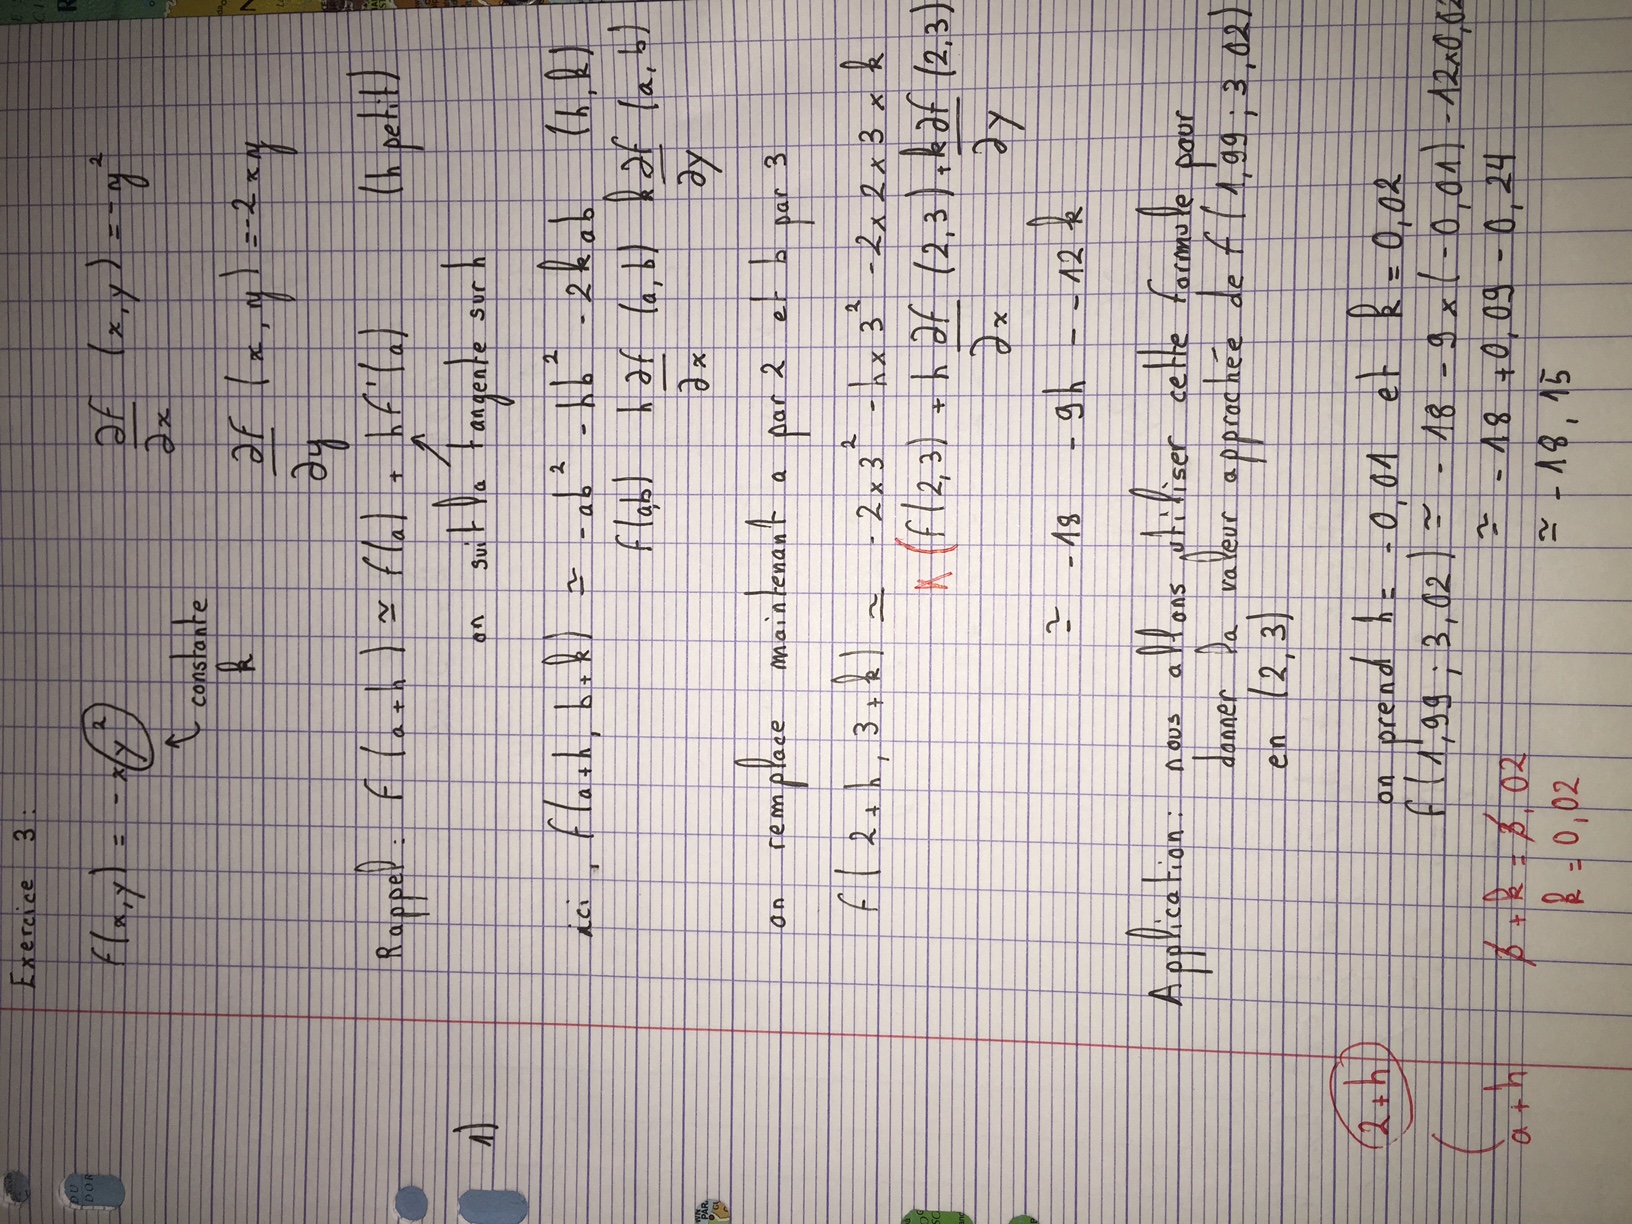 Exercice 3:
f(x,y) = -xy²
constante
k
∂f/∂x (x,y) = -y²
∂f/∂y (x,y) = -2xy
Rappel: f(a+h) ≃ f(a) + hf'(a) (h petit)
on suit la tangente sur h
1)
ici, f(a+h, b+k) ≃ -ab² - hb² - 2kab (h,k)
f(a,b) h ∂f/∂x (a,b) k ∂f/∂y (a,b)
on remplace maintenant a par 2 et b par 3
f(2+h, 3+k) ≃ -2x3² - hx3² -2x2x3xk
(f(2,3) + h ∂f/∂x (2,3) + k ∂f/∂y (2,3)
≃ -18 - 9h - -12k
Application: nous allons utiliser cette formule pour
donner la valeur approchée de f(1,99; 3,02)
en (2,3)
2+h
on prend h= -0,01 et k = 0,02
(
a+h
f(1,99; 3,02) ≃ -18 -9x(-0,01) -12x0,02
≃ -18 +0,09 -0,24
≃ -18,15
3+k = 3,02
k = 0,02